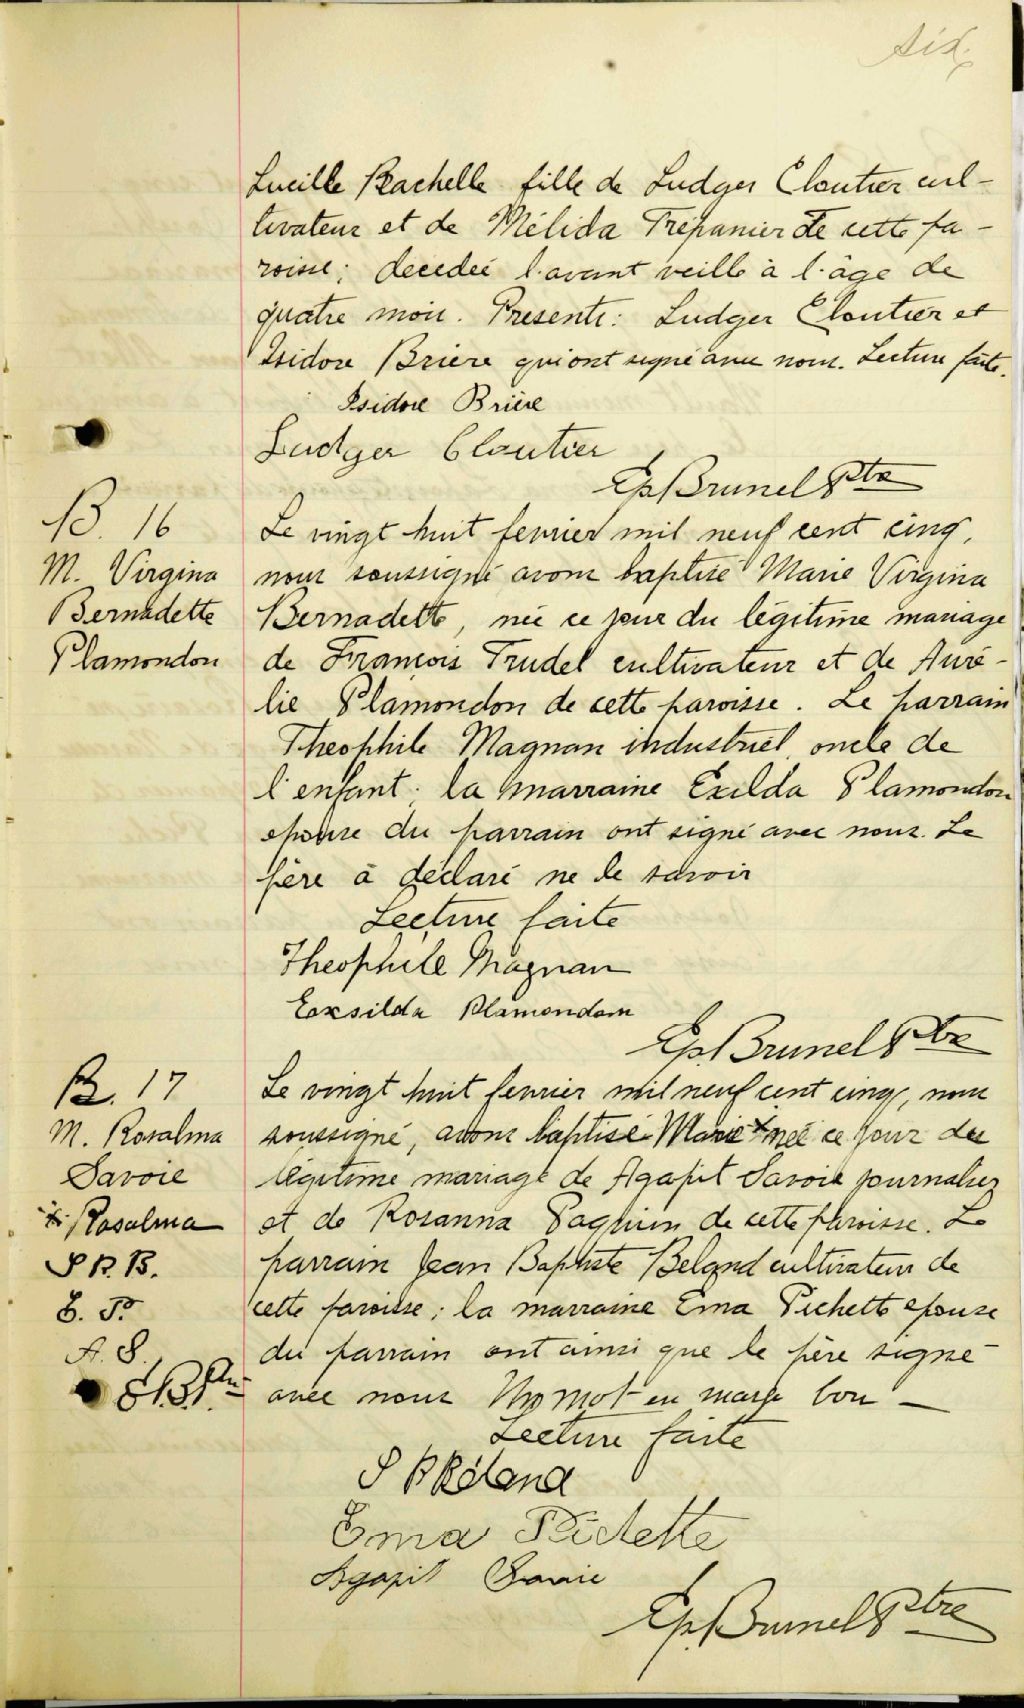 six
Lucille Rachelle fille de Ludger Cloutier cul-
tivateur et de Mélida Trépanier de cette pa-
roisse; decedée l'avant veille à l'âge de
quatre mois. Presents: Ludger Cloutier et
Isidore Brière qui ont signé avec nous. Lecture faite.
Isidore Brière
Ludger Cloutier
Ep Brunel Ptre
B. 16
M. Virgina
Bernadette
Plamondon
Le vingt huit fevrier mil neuf cent cinq,
nous soussigné avons baptisé Marie Virgina
Bernadette, née ce jour du légitime mariage
de François Trudel cultivateur et de Auré-
lie Plamondon de cette paroisse. Le parrain
Theophile Magnan industriel oncle de
l'enfant; la marraine Exilda Plamondon
epouse du parrain ont signé avec nous. Le
père à déclaré ne le savoir
Lecture faite
Theophile Magnan
Exsilda Plamondom
Ep. Brunel Ptre
B. 17
M. Rosalma
Savoie
x Rosalma
J B. B.
E. P.
A. S.
E.B. Ptre
Le vingt huit fevrier mil neuf cent cinq, nous
soussigné, avons baptisé Marie x née ce jour du
légitime mariage de Agapit Savoie journalier
et de Rosanna Paquin de cette paroisse. Le
parrain Jean Baptiste Beland cultivateur de
cette paroisse; la marraine Ema Pichette epouse
du parrain ont ainsi que le père signé
avec nous Un mot en marge bon —
Lecture faite
J B Béland
Ema Pichette
Agapit Savoie
Ep. Brunel Ptre